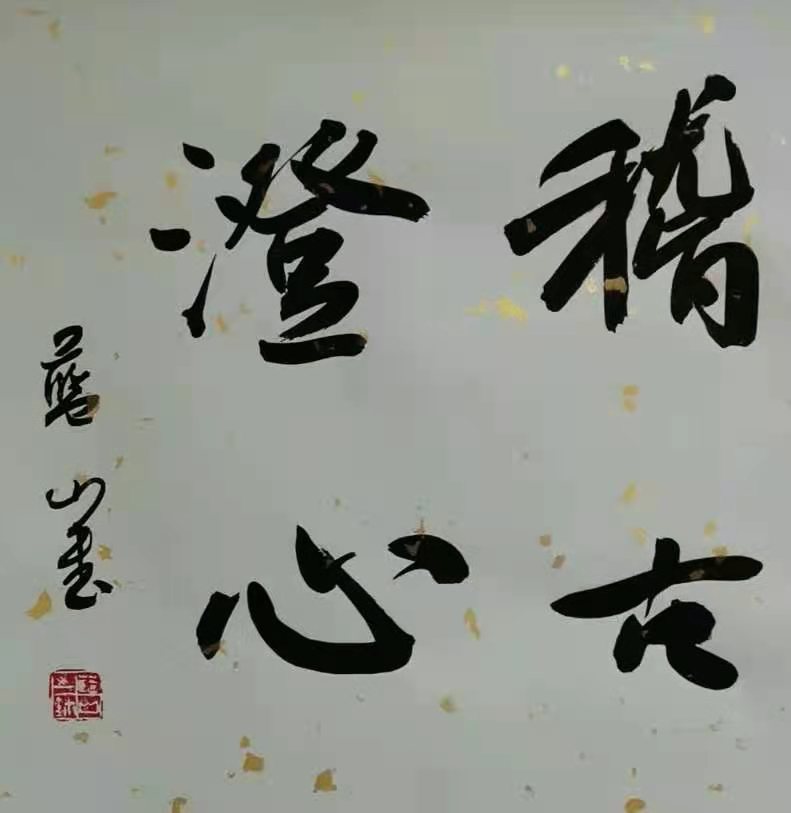 稽古
澄心
蓝山書